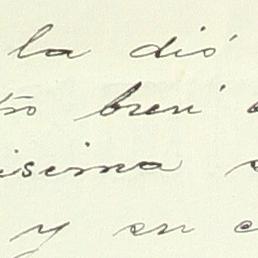 la dió
tro bren
isima
y en